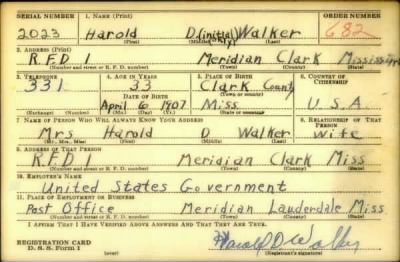 SERIAL NUMBER 1. NAME (Print) ORDER NUMBER
2023 Harold D(initial only) Walker 682
(First) (Middle) (Last)
2. ADDRESS (Print)
R.F.D 1 Meridian Clark Mississippi
(Number and street or R. F. D. number) (Town) (County) (State)
3. TELEPHONE 4. AGE IN YEARS 5. PLACE OF BIRTH 6. COUNTRY OF CITIZENSHIP
331 33 Clark County
DATE OF BIRTH (Town or county)
April 6 1907 Miss U.S.A.
(Exchange) (Number) (Mo.) (Day) (Yr.) (State or country)
7. NAME OF PERSON WHO WILL ALWAYS KNOW YOUR ADDRESS 8. RELATIONSHIP OF THAT PERSON
Mrs Harold D Walker wife
(Mr., Mrs., Miss) (First) (Middle) (Last)
9. ADDRESS OF THAT PERSON
R.F.D 1 Meridian Clark Miss
(Number and street or R. F. D. number) (Town) (County) (State)
10. EMPLOYER'S NAME
United States Government
11. PLACE OF EMPLOYMENT OR BUSINESS
Post Office Meridian Lauderdale Miss
(Number and street or R. F. D. number) (Town) (County) (State)
I AFFIRM THAT I HAVE VERIFIED ABOVE ANSWERS AND THAT THEY ARE TRUE.
REGISTRATION CARD Harold D Walker
D. S. S. Form 1 (over) (Registrant's signature)